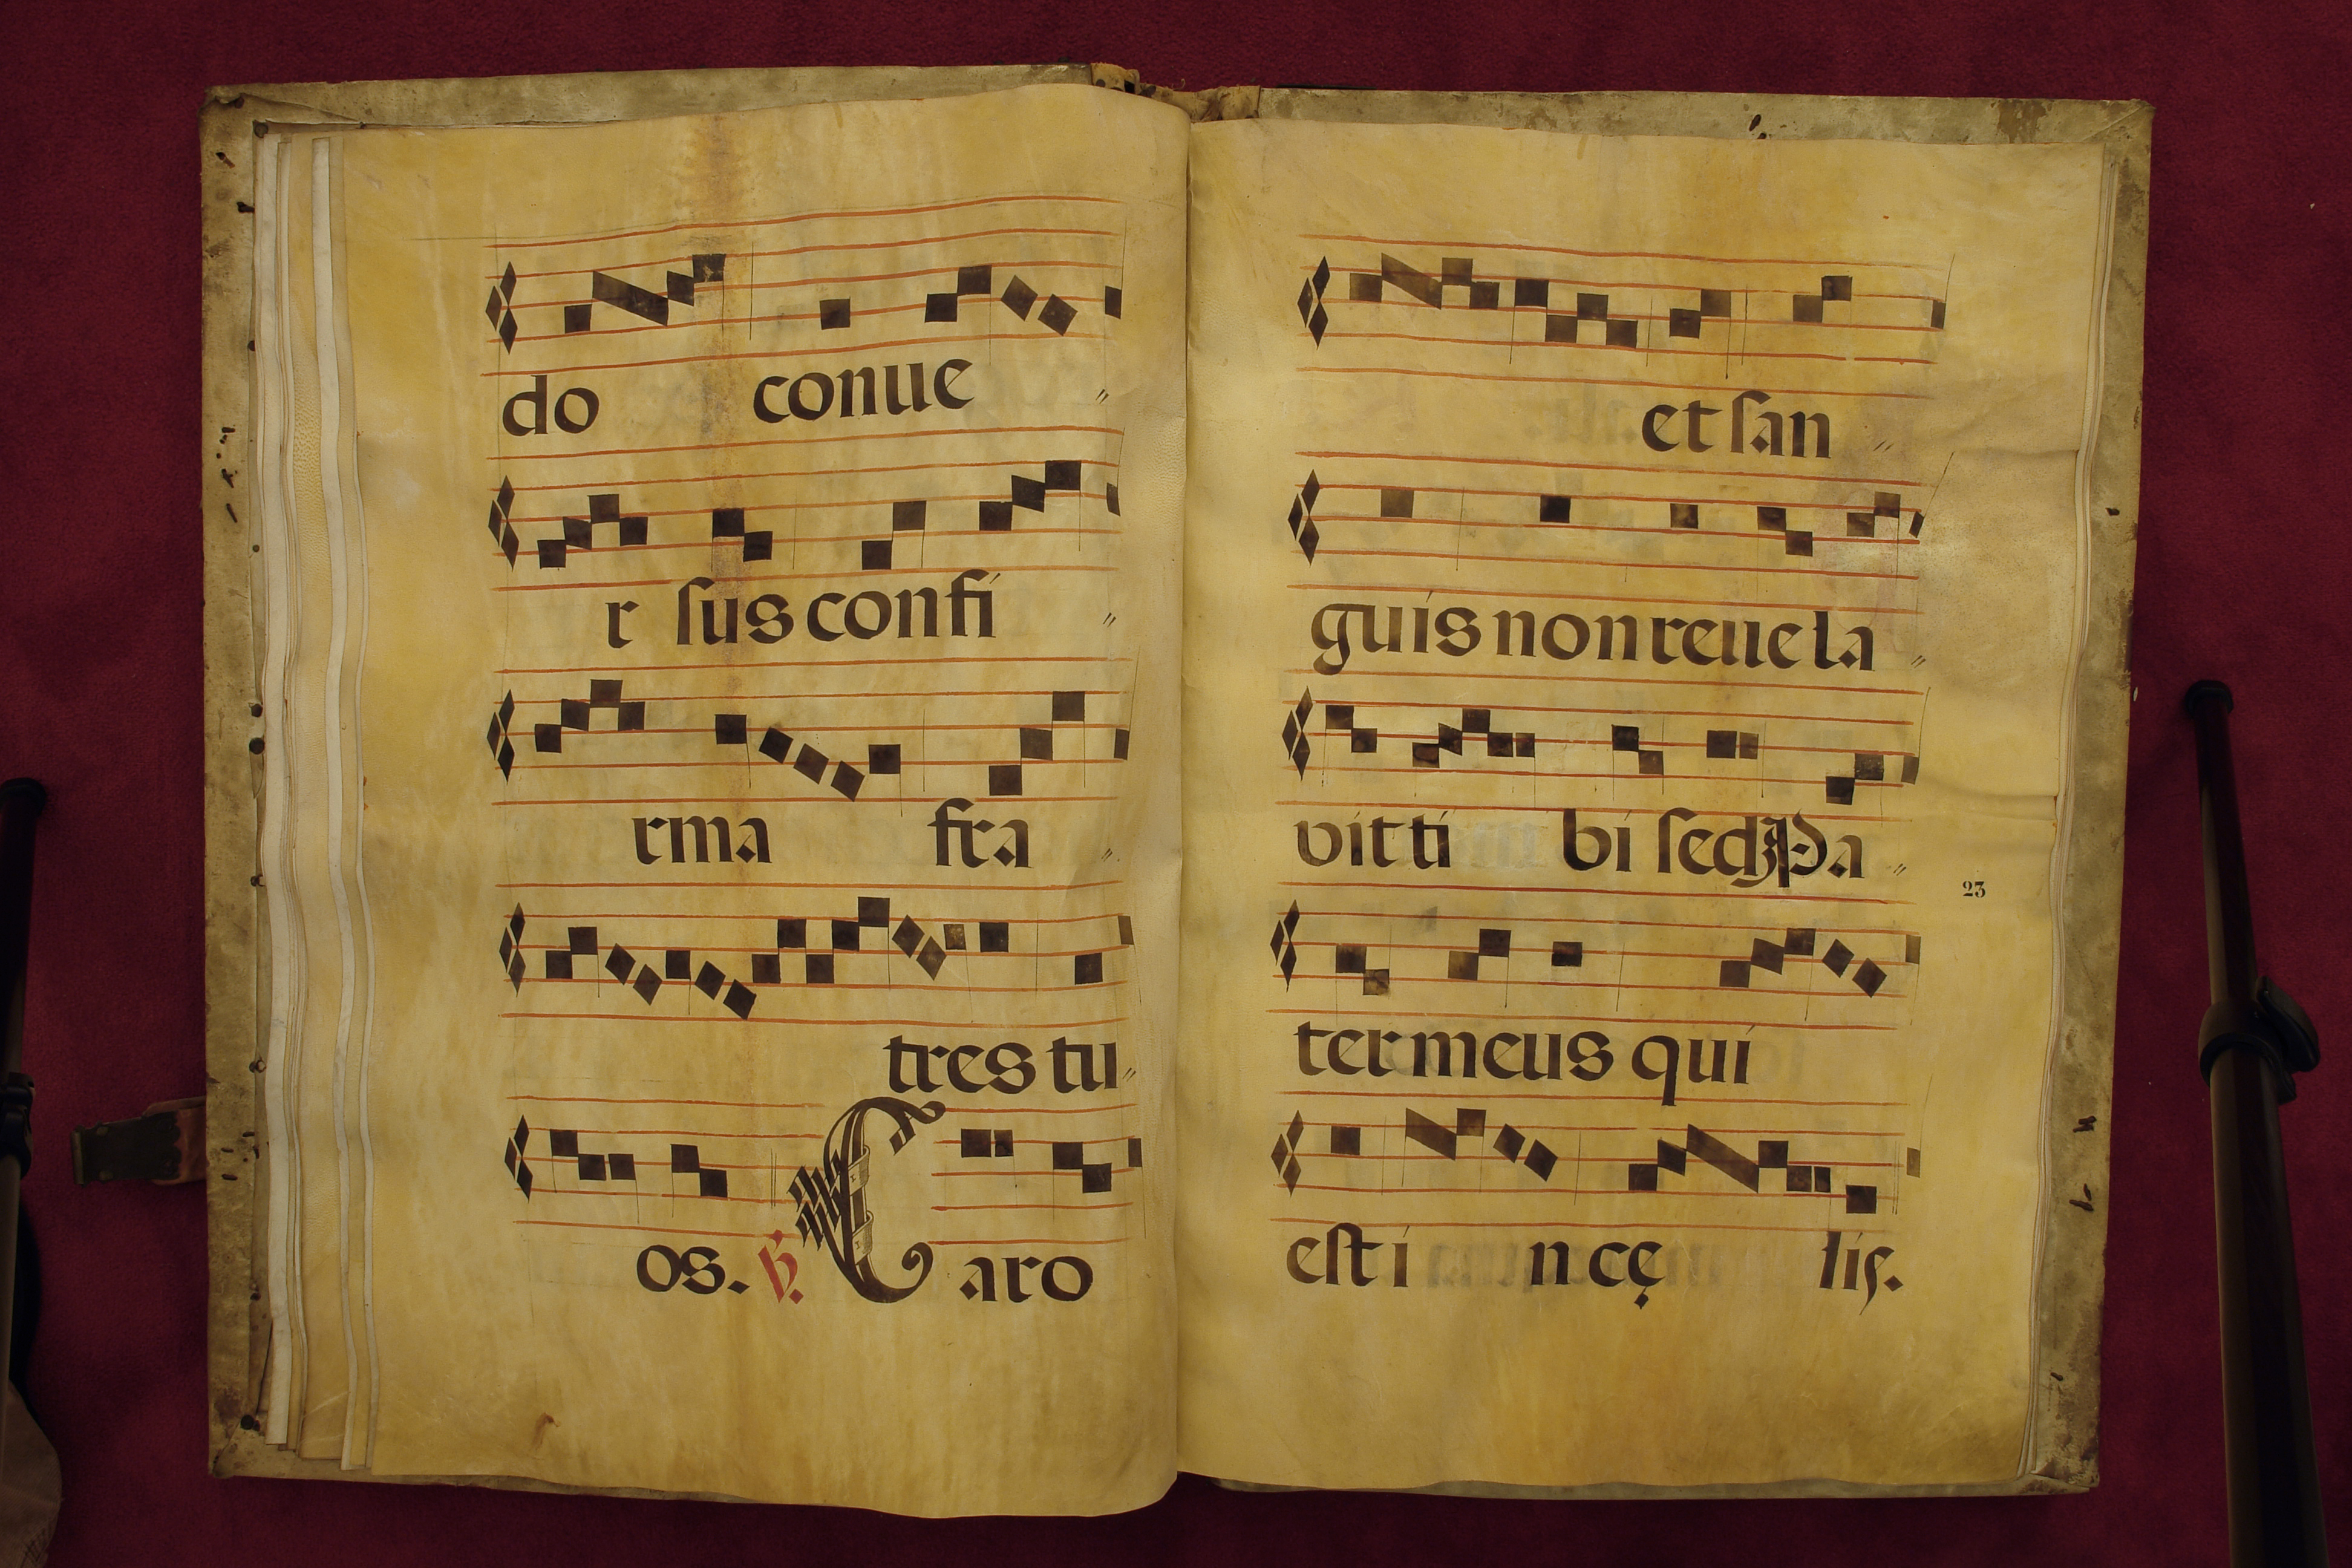 do conue
r ſus confi
rma fra
tres tu
os. ℟. Caro
et ſan
guis non reuela
vit ti bi ſed Pa
23
ter meus qui
eſt i n cę lis.